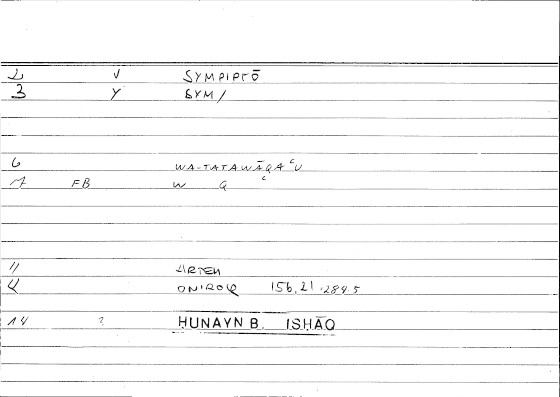 2 V SYMPIPTŌ
3 Y SYM/
6 WA-TATAWĀQAʿU
7 FB W Q ʿ
11 ARTEM
ONIROCR 156,21 .284.5
14 ? HUNAYN B. ISḤĀQ